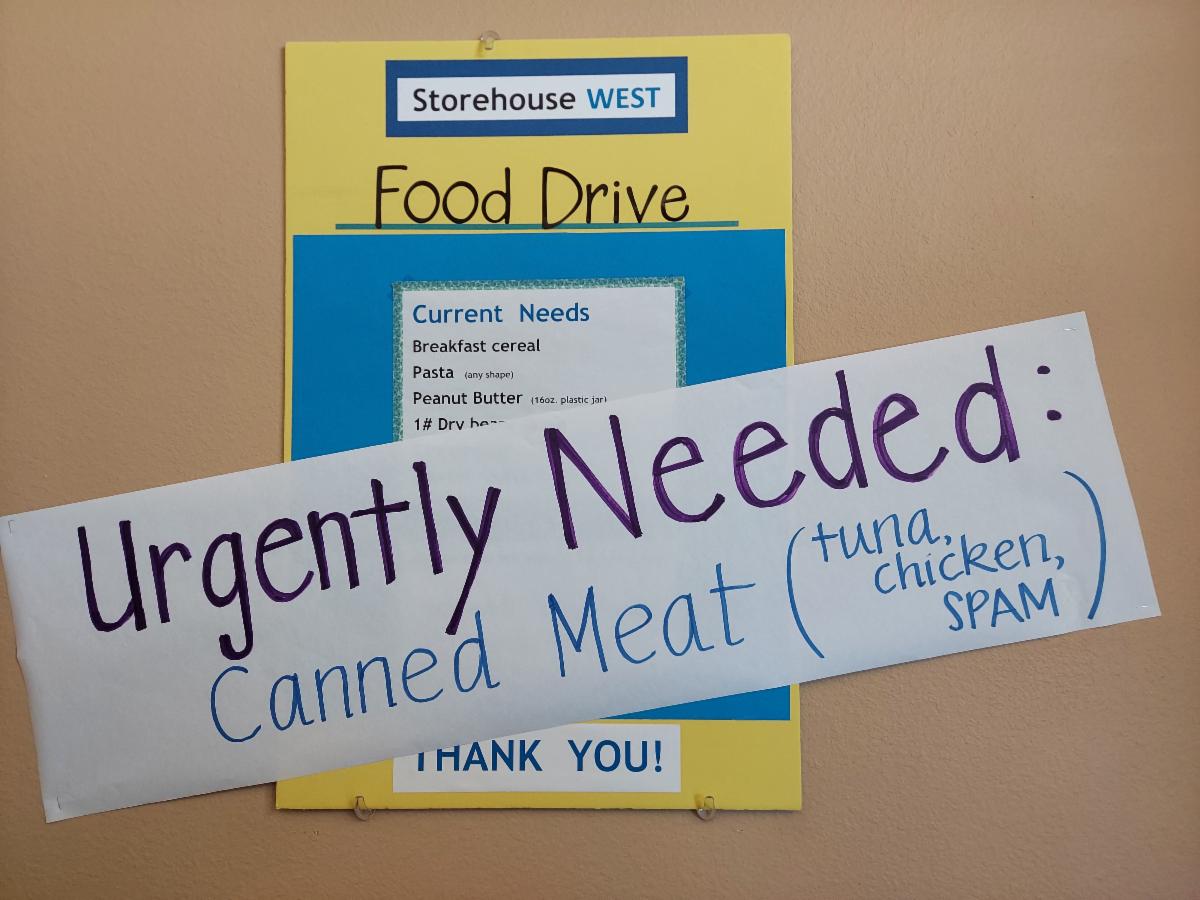 Storehouse WEST
Food Drive
Current Needs
Breakfast cereal
Pasta (any shape)
Peanut Butter (16oz. plastic jar)
1# Dry
Urgently Needed:
Canned Meat (tuna,
chicken,
SPAM)
THANK YOU!